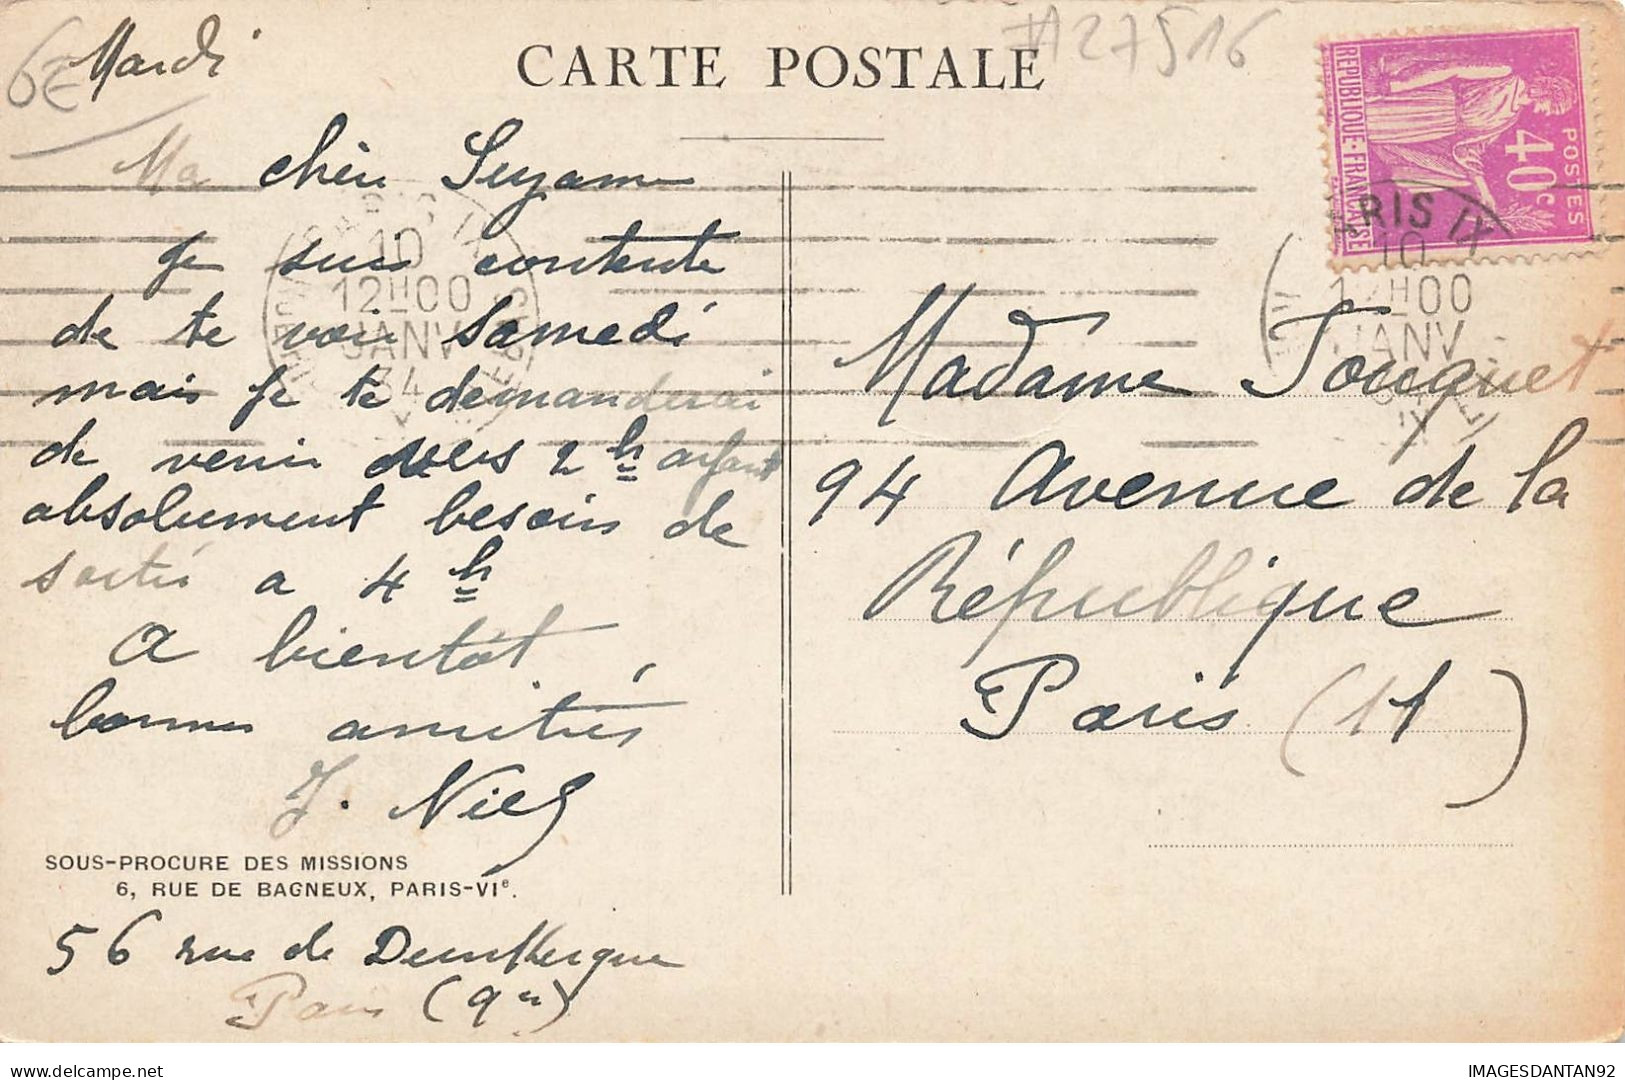 6€
Mardi
CARTE POSTALE
#27516
POSTES
40c
REPUBLIQUE-FRANÇAISE
Ma chère Suzanne
Je suis contente
de te voir Samedi
mais je te demanderai
de venir vers 2 h ayant
absolument besoin de
sortir a 4 h
A bientôt,
bonnes amitiés
J. Niel
SOUS-PROCURE DES MISSIONS
6, RUE DE BAGNEUX, PARIS-VIe.
56 rue de Dunkerque
Paris (9e)
PARIS IX
10
12H00
JANV
34
ARIS IX
10
12H00
JANV
Madame Touquet
94 Avenue de la
République
Paris (11)
IMAGESDANTAN92
delcampe.net